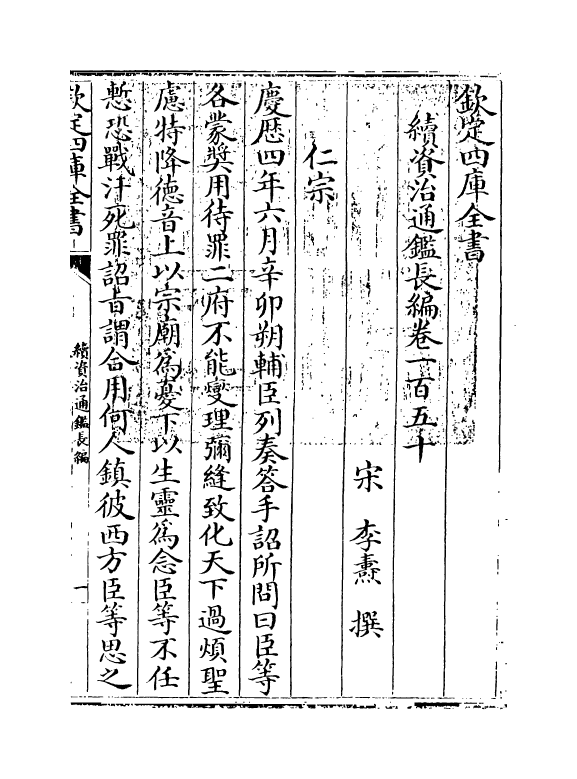 欽定四庫全書
續資治通鑑長編卷一百五十
宋 李燾 撰
仁宗
慶歴四年六月辛卯朔輔臣列奏答手詔所問曰臣等
各蒙奬用待罪二府不能燮理彌縫致化天下過煩聖
慮特降德音上以宗廟為憂下以生靈為念臣等不任
慙恐戰汗死罪詔旨謂合用何人鎮彼西方臣等思之
欽定四庫全書
續資治通鑑長編
一